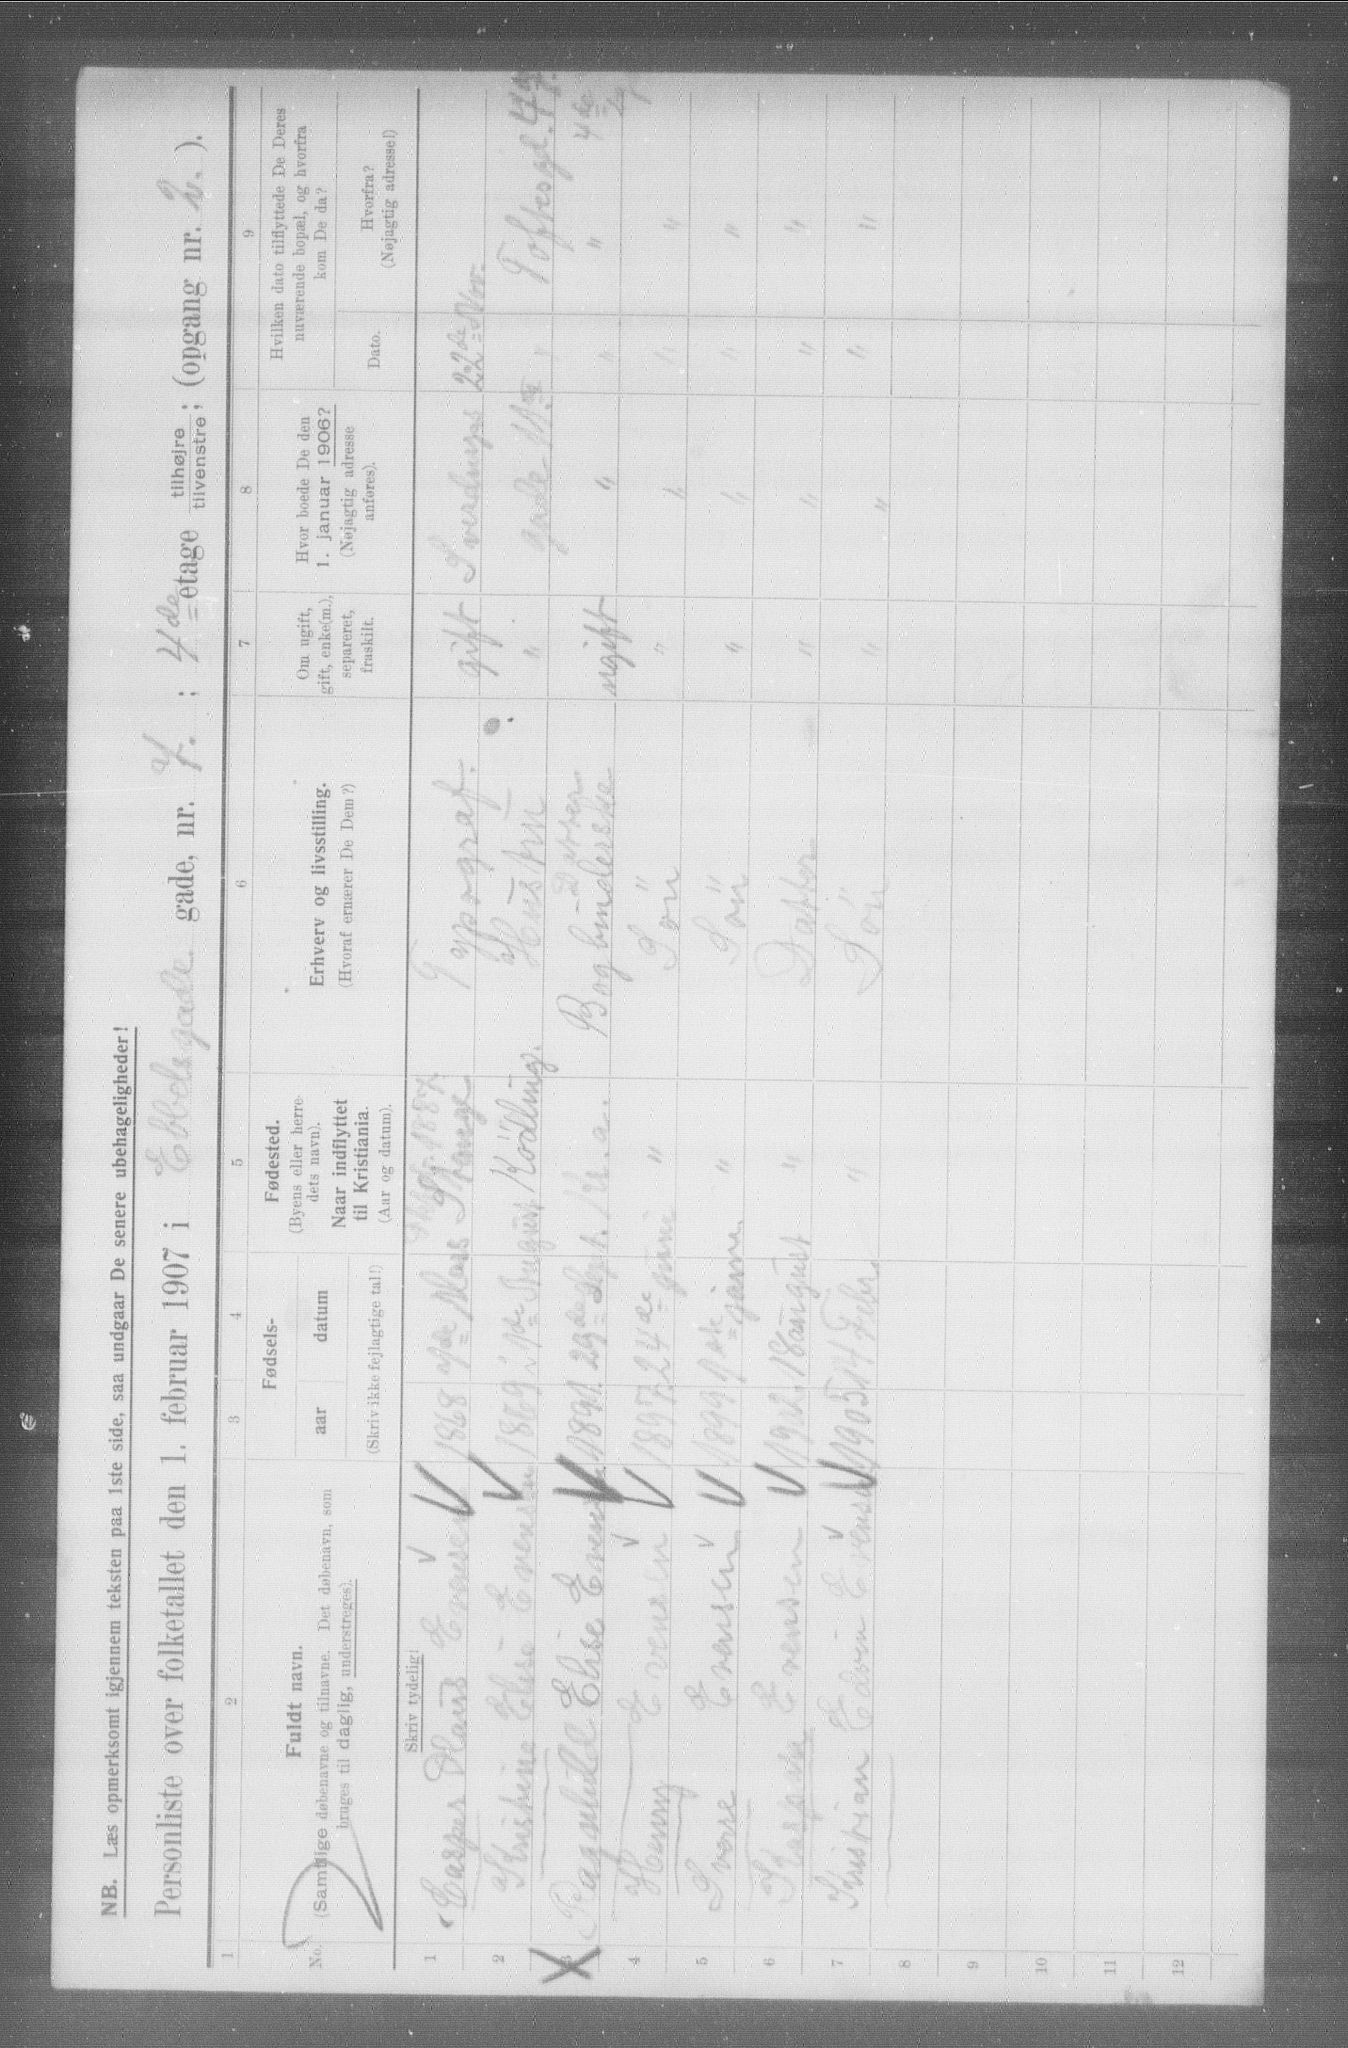 NB. Læs opmerksomt igjennem teksten paa 1ste side, saa undgaar De senere ubehageligheder!
Personliste over folketallet den 1. februar 1907 i Ebbelsgade gade, nr. 7. ; 4de etage tilhøjre tilvenstre ; (opgang nr. 2. ).
1 2 3 4 5 6 7 8 9
No.
Fuldt navn.
(Samtlige døbenavne og tilnavne. Det døbenavn, som
bruges til daglig, understreges).
Skriv tydelig!
Fødsels-
aar datum
(Skriv ikke fejlagtige tal!)
Fødested.
(Byens eller herre-
dets navn).
Naar indflyttet
til Kristiania.
(Aar og datum).
Erhverv og livsstilling.
(Hvoraf ernærer De Dem?)
Om ugift,
gift, enke(m.),
separeret,
fraskilt.
Hvor boede De den
1. januar 1906?
(Nøjagtig adresse
anføres).
Hvilken dato tilflyttede De Deres
nuværende bopæl, og hvorfra
kom De da?
Dato.
Hvorfra?
(Nøjagtig adresse!)
1 Casper Evensen 1868 1887 Stange Typograf. gift Sverdrups 22de Nov.
2 Kristine Elise Evensen 1869 August Kødling. Hustru " gade " Toftesgd.
3 Ragnhild Elise Evensen 1891 29de Sept. Kr.a. Datter Bogbinderske ugift " " " 4de
4 Henry Evensen 1897 24de juni " Søn " " " "
5 Evensen 1899 " Søn " " " "
6 Evensen 18 august " Datter " " " "
7 Kristian Edvin Evensen 1905 14 Febr. " Søn " " " "
8
9
10
11
12